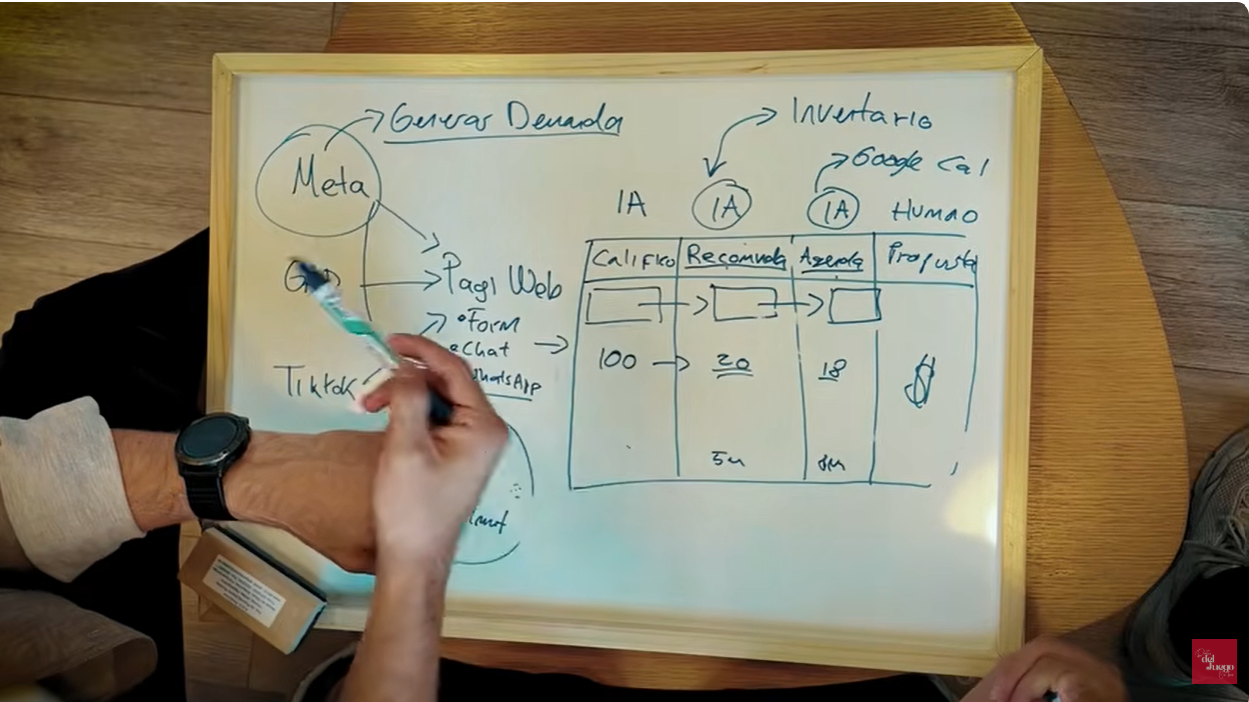 Generar Demanda
Meta
Pagi Web
Form
Chat
WhatsApp
Tiktok
Inventario
Google Cal
IA IA IA Humano
Califico Recomienda Agenda Propuesta
100 20 18 $
5m 8m
del Juego